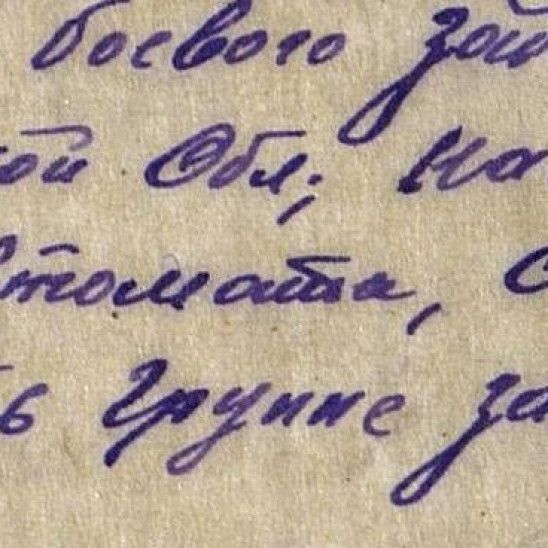 боевого зад
ой Обл; На
втомата, с
ь группе за